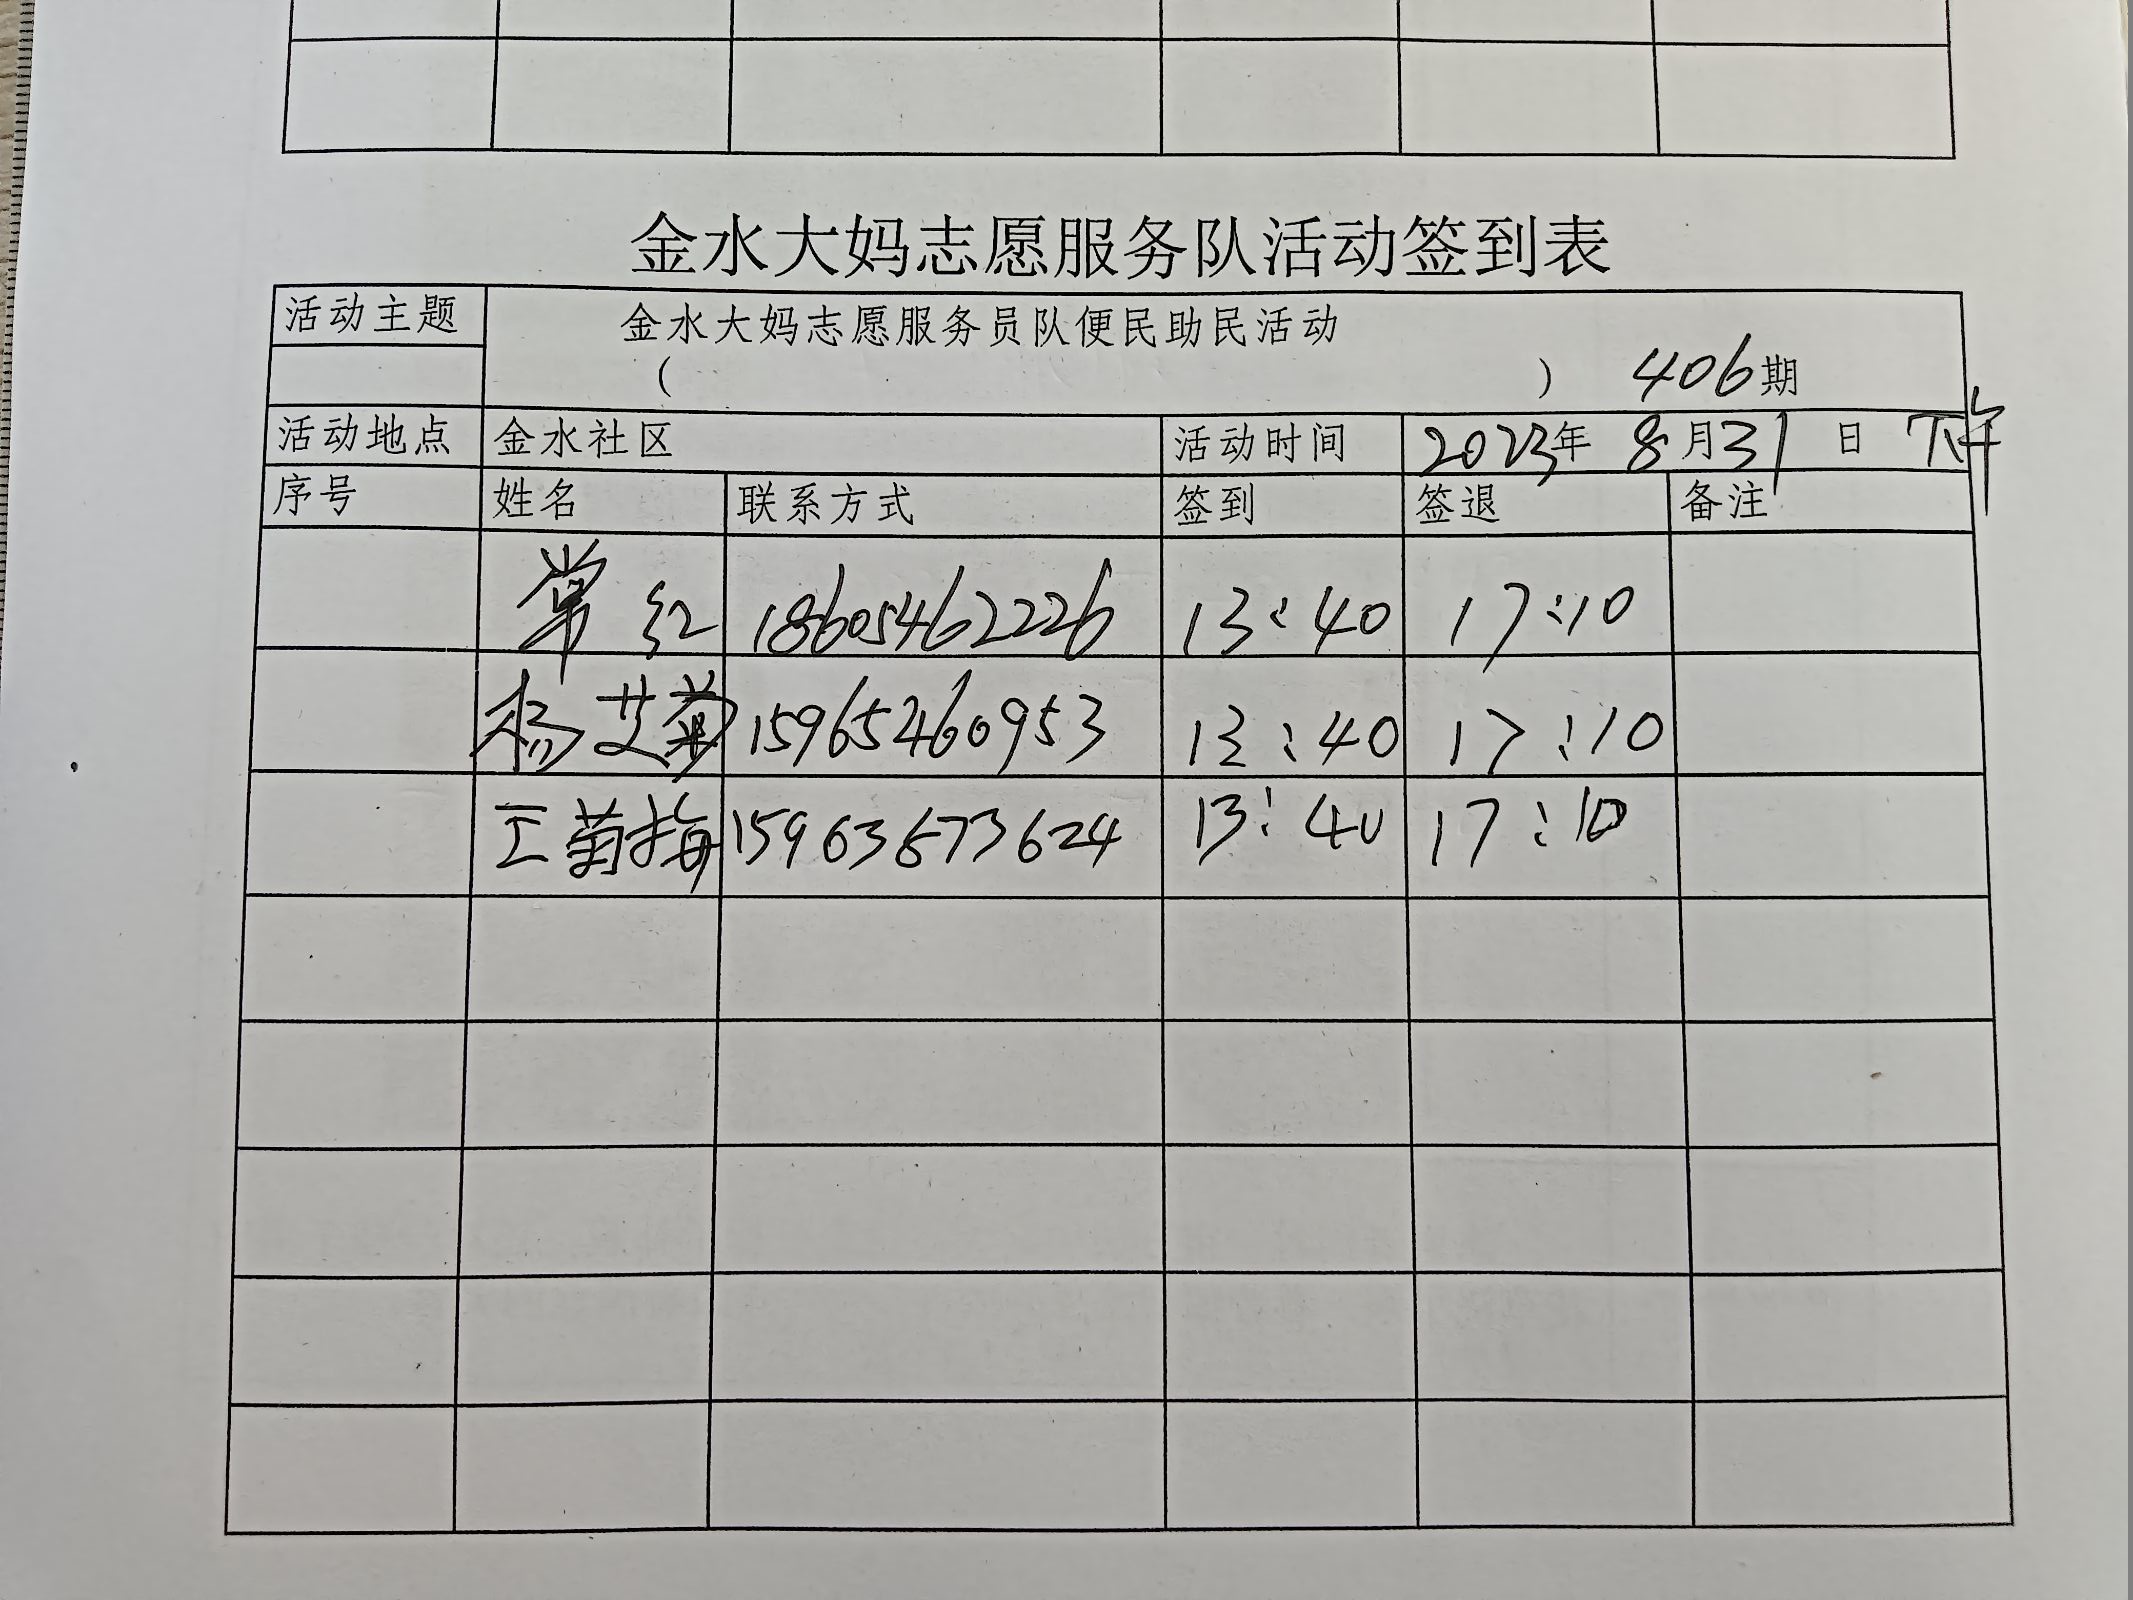 金水大妈志愿服务队活动签到表
活动主题 金水大妈志愿服务员队便民助民活动
( ) 406期
活动地点 金水社区 活动时间 2023年 8月31日 下午
序号 姓名 联系方式 签到 签退 备注
常红 18605462226 13:40 17:10
杨艾菊 15965460953 13:40 17:10
王菊梅 15963673624 13:40 17:10